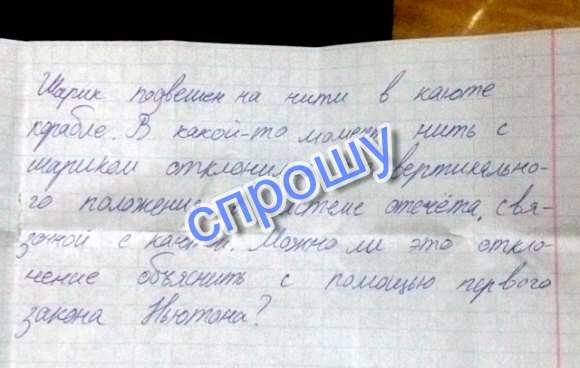 Шарик подвешен на нити в каюте
корабле. В какой-то момент нить с
шариком вертикально-
го системе отсчёта, свя-
занной с Можно ли это откло-
нение объяснить с помощью первого
закона Ньютона?
спрошу